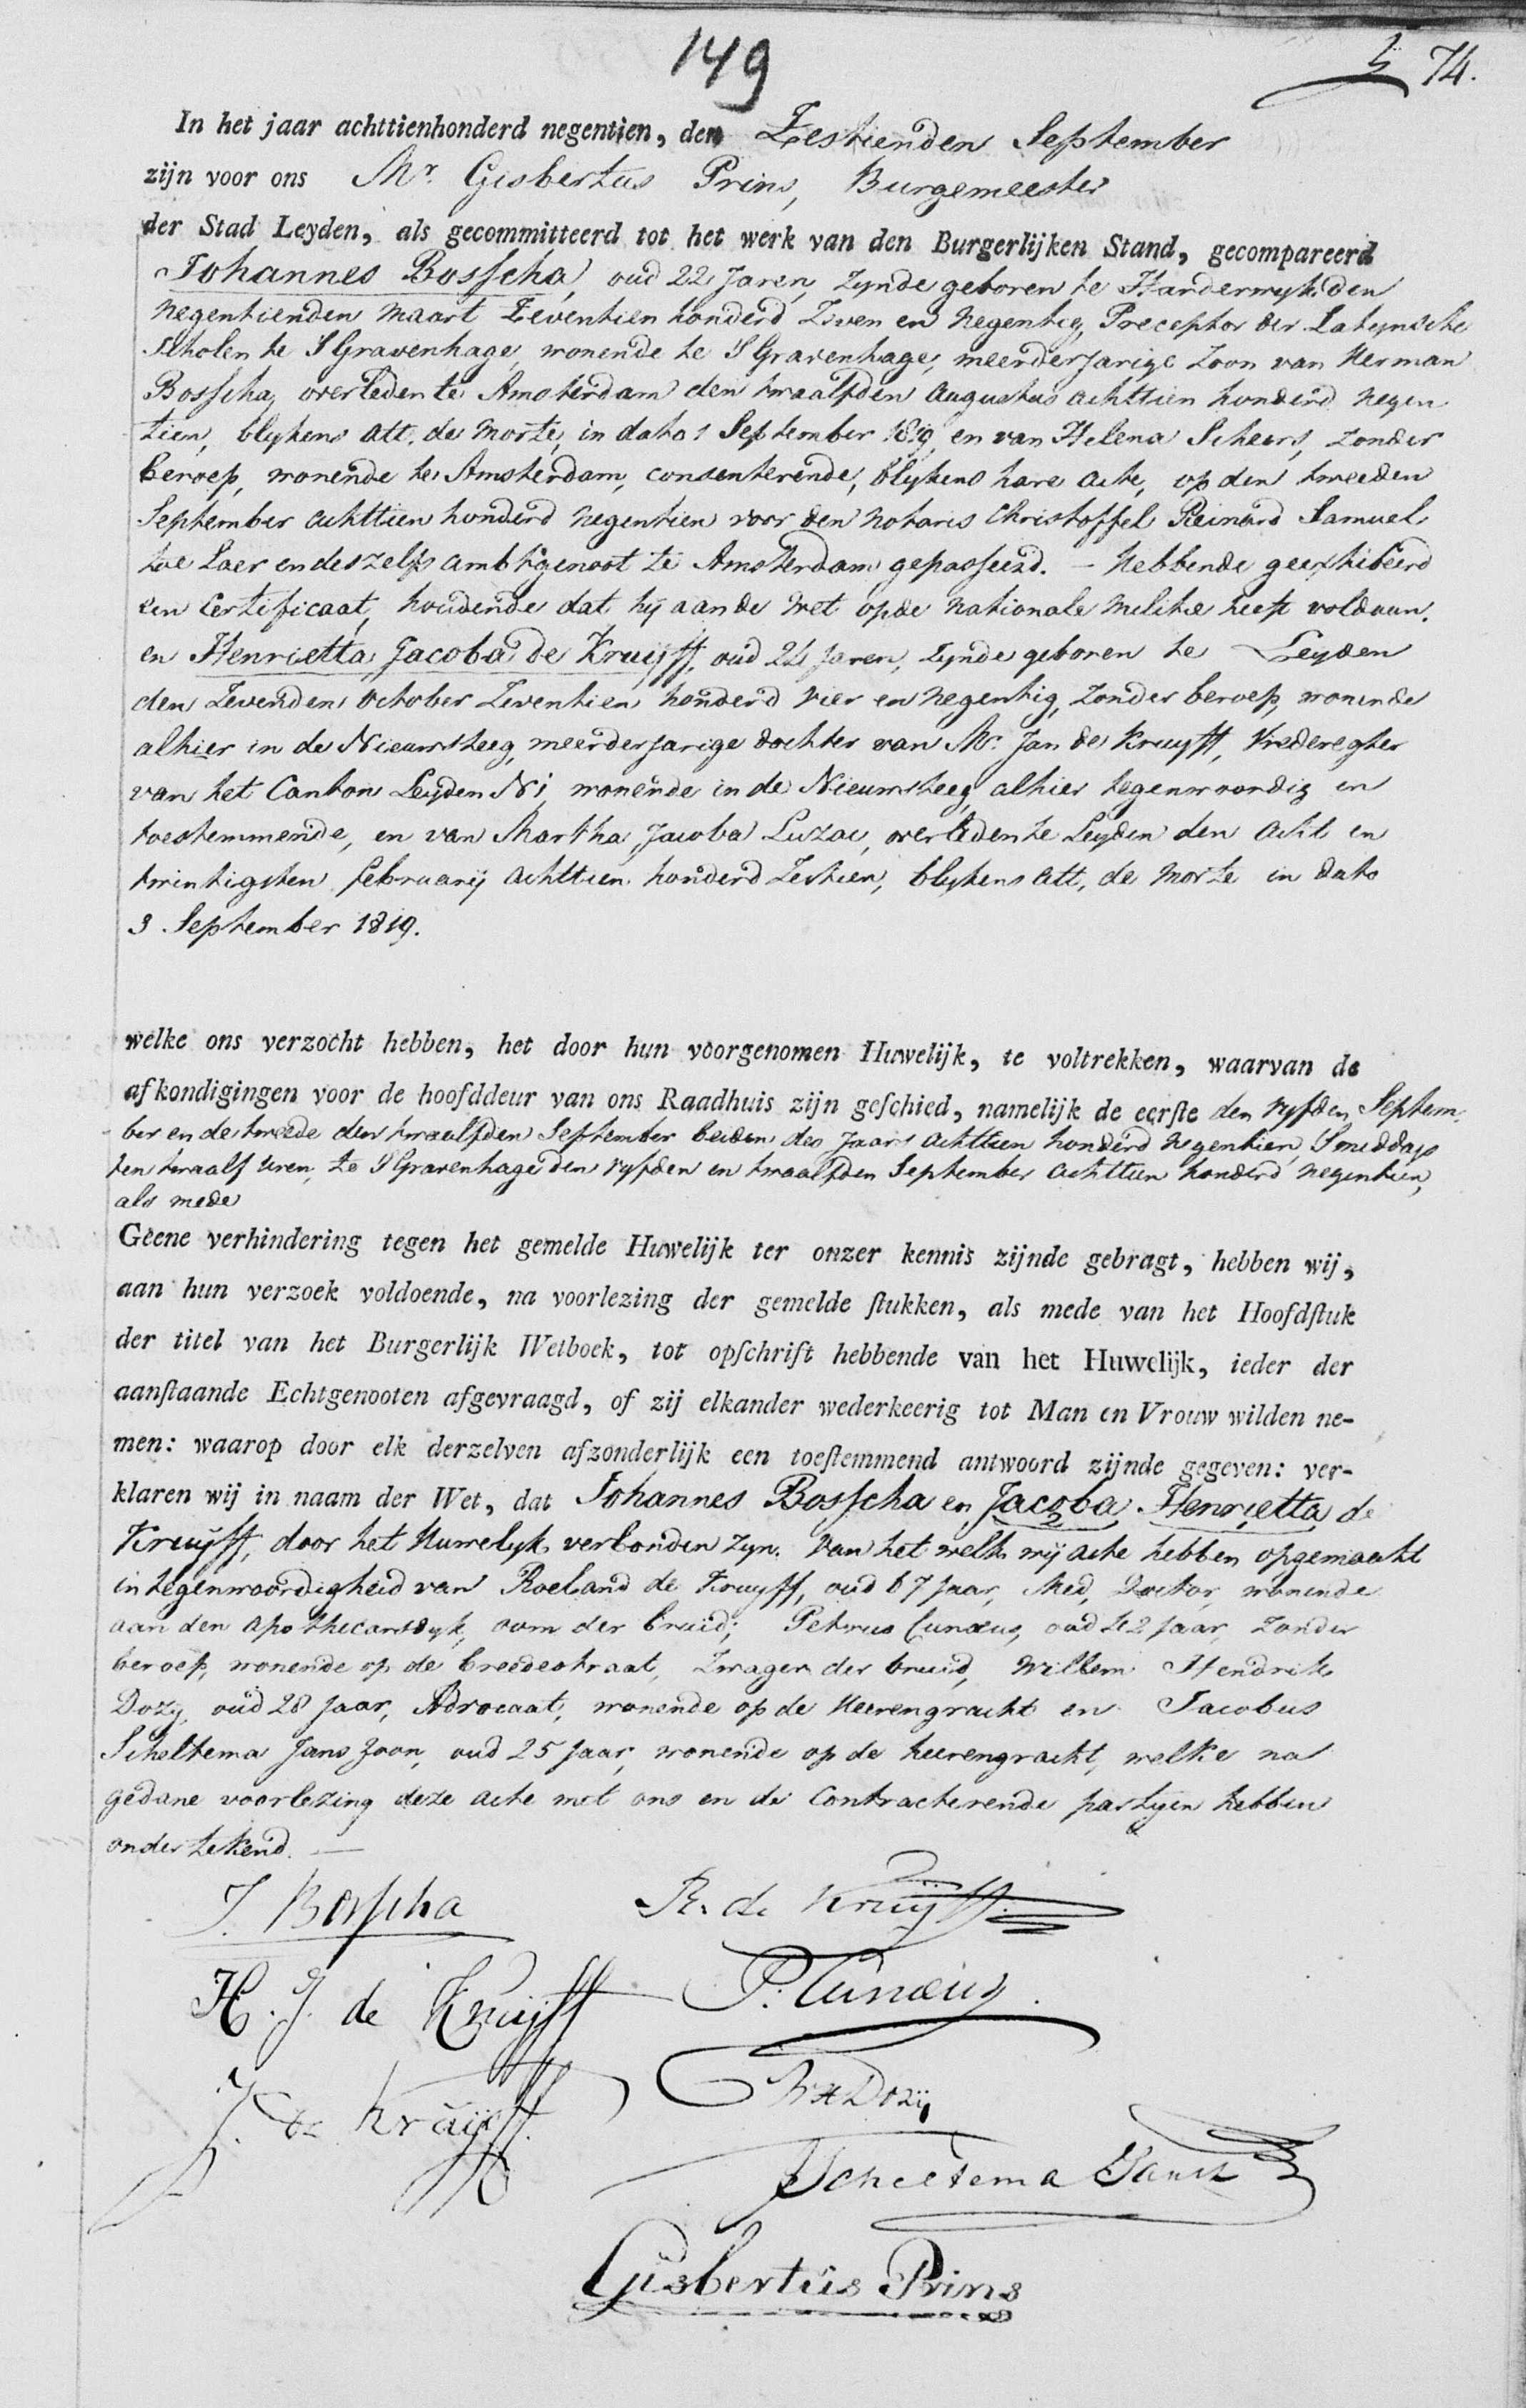 149
74.
In het jaar achttienhonderd negentien, den Zestienden September
zijn voor ons Mr. Gisbertus Prins, Burgemeester
der Stad Leyden, als gecommitteerd tot het werk van den Burgerlijken Stand, gecompareerd
Johannes Bosscha, oud 22 Jaren, zynde geboren te Harderwyk den
negentienden Maart Zeventien honderd Zeven en Negentig, Preceptor der Latynsche
Scholen te S'Gravenhage, wonende te S'Gravenhage, meerderjarige Zoon van Herman
Bosscha, overleden te Amsterdam den twaalfden Augustus achttien honderd negen
tien, blykens att. de Morte, in dato 1 September 1819, en van Helena Scheers, zonder
beroep, wonende te Amsterdam, consenterende, blykens hare acte, op den tweeden
September achttien honderd negentien voor den Notaris Christoffel Reinard Samuel
toe Laer en deszelfs ambtgenoot te Amsterdam gepasseerd. - Hebbende geexhibeerd
een Certificaat, houdende dat hij aan de Wet op de Nationale Militie heeft voldaan.
en Henrietta Jacoba de Kruyff, oud 24 Jaren, zynde geboren te Leyden
den Zevenden October Zeventien honderd vier en negentig, zonder beroep, wonende
alhier in de Nieuwsteeg, meerderjarige dochter van Mr. Jan de Kruyff, Vrederegter
van het Canton Leyden N1, wonende in de Nieuwsteeg, alhier tegenwoordig en
toestemmende, en van Martha Jacoba Luzac, overleden te Leyden den acht en
twintigsten februarij achttien honderd Zestien, blykens att. de Morte in dato
3 September 1819.
welke ons verzocht hebben, het door hun voorgenomen Huwelijk, te voltrekken, waarvan de
afkondigingen voor de hoofddeur van ons Raadhuis zijn geschied, namelijk de eerste den vyfden Septem-
ber en de tweede den twaalfden September beiden des Jaars achttien honderd negentien, S'middags
ten twaalf uren, te S'Gravenhage den vyfden en twaalfden September achttien honderd negentien,
als mede
Geene verhindering tegen het gemelde Huwelijk ter onzer kennis zijnde gebragt, hebben wij,
aan hun verzoek voldoende, na voorlezing der gemelde stukken, als mede van het Hoofdstuk
der titel van het Burgerlijk Wetboek, tot opschrift hebbende van het Huwelijk, ieder der
aanstaande Echtgenooten afgevraagd, of zij elkander wederkeerig tot Man en Vrouw wilden ne-
men: waarop door elk derzelven afzonderlijk een toestemmend antwoord zijnde gegeven: ver-
klaren wij in naam der Wet, dat Johannes Bosscha en Jacoba Henrietta de
2 1
Kruyff, door het Huwelyk verbonden zyn. Van het welk wij acte hebben opgemaakt
in tegenwoordigheid van Roeland de Kruyff, oud 67 Jaar, Med. Doctor, wonende
aan den Apothecarsdyk, oom der bruid; Petrus Cunæus, oud 42 Jaar, zonder
beroep, wonende op de breedestraat, Zwager der bruid, Willem Hendrik
Dozy, oud 28 Jaar, Advocaat, wonende op de Heerengracht en Jacobus
Scheltema Jans Zoon, oud 25 Jaar, wonende op de heerengracht, welke na
gedane voorlezing deze acte met ons en de Contracterende partyen hebben
ondertekend.
J. Bosscha R. de Kruyff
H. J. de Kruyff P. Cunæus.
J. de Kruijff. W H Dozij
J Scheltema Jansz
Gisbertus Prins